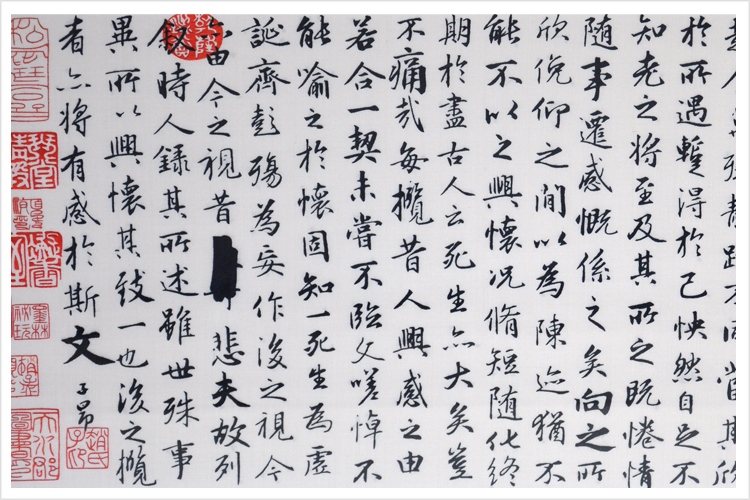 殊靜躁不同當其欣
於所遇蹔得於己怏然自足不
知老之將至及其所之既惓情
隨事遷感慨係之矣向之所
欣俛仰之間以為陳迹猶不
能不以之興懷況脩短隨化終
期於盡古人云死生亦大矣豈
不痛哉每攬昔人興感之由
若合一契未嘗不臨文嗟悼不
能喻之於懷固知一死生為虛
誕齊彭殤為妄作後之視今
由今之視昔悲夫故列
叙時人錄其所述雖世殊事
異所以興懷其致一也後之攬
者亦將有感於斯文
子昂
趙氏子昂